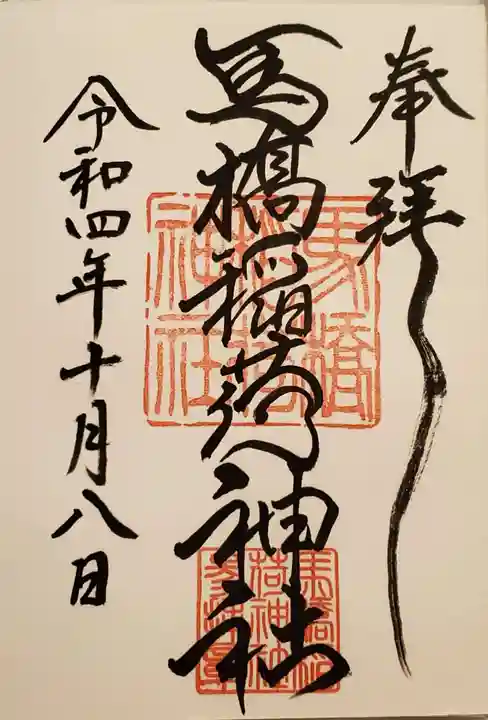 奉拝
馬橋稲荷神社
令和四年十月八日
馬橋稲荷神社